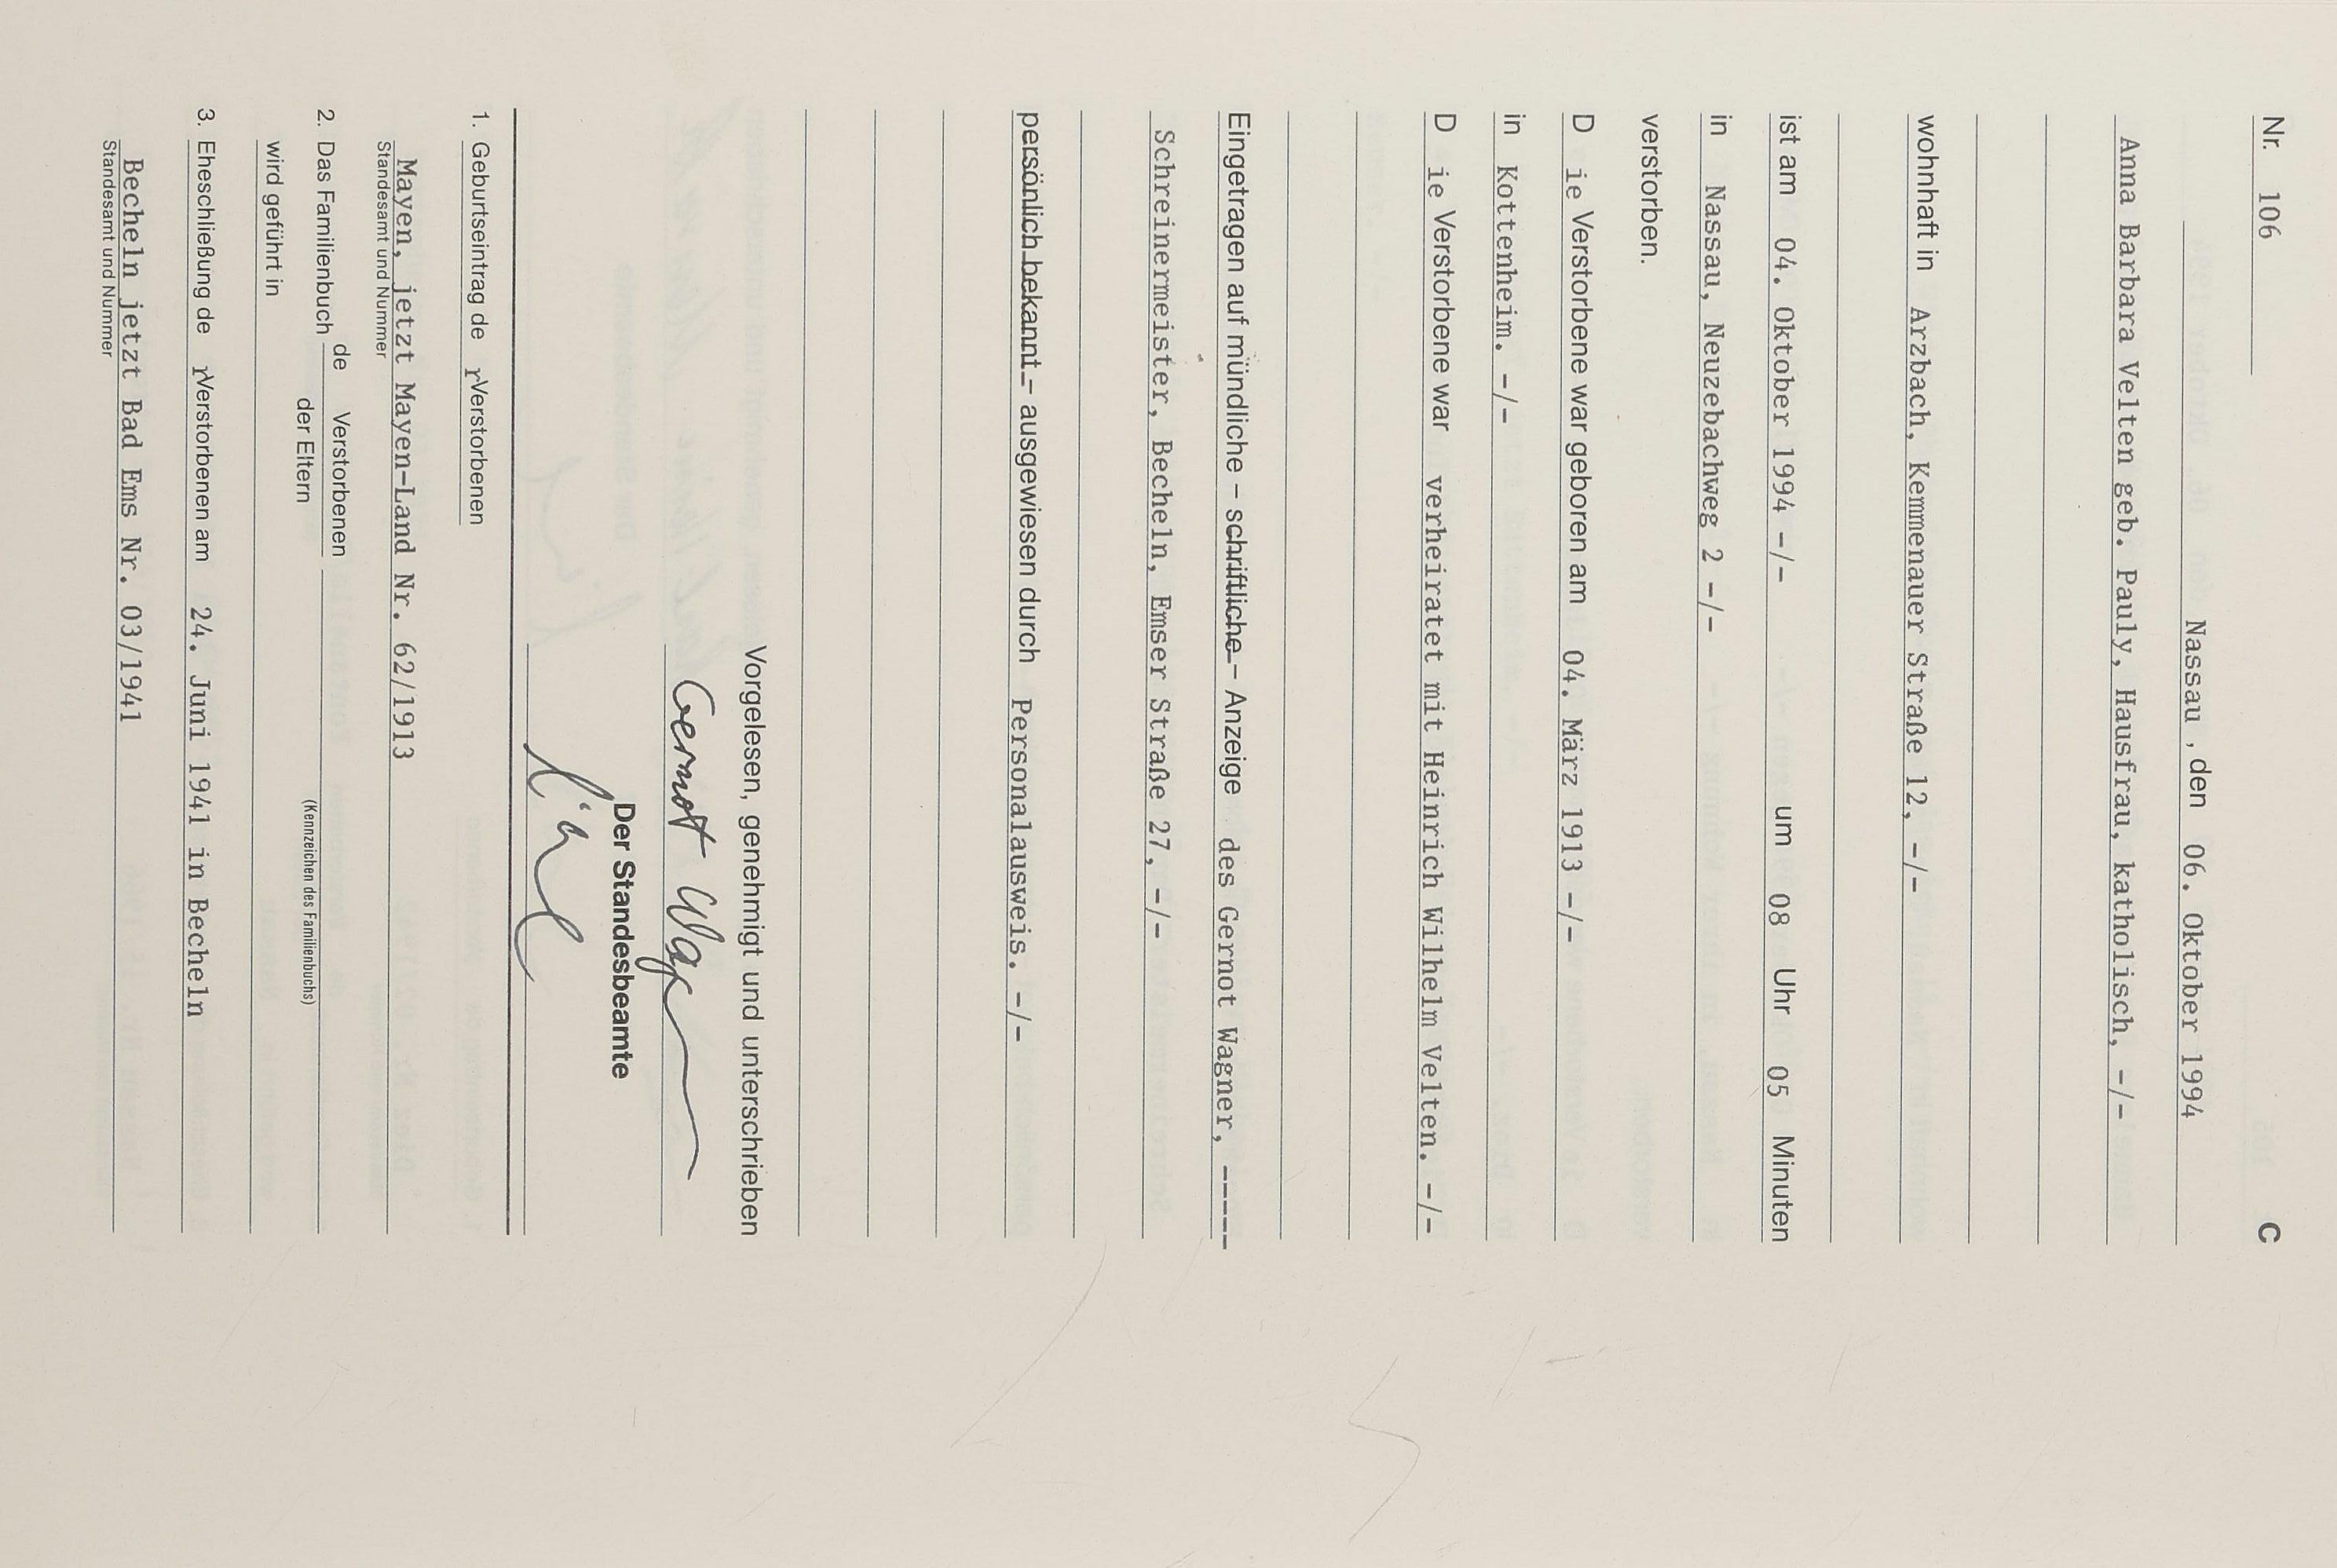 Nr. 106 C
Nassau, den 06. Oktober 1994
Anna Barbara Velten geb. Pauly, Hausfrau, katholisch, -/-
wohnhaft in Arzbach, Kemmenauer Straße 12, -/-
ist am 04. Oktober 1994 -/- um 08 Uhr 05 Minuten
in Nassau, Neuzebachweg 2 -/-
verstorben.
D ie Verstorbene war geboren am 04. März 1913 -/-
in Kottenheim. -/-
D ie Verstorbene war verheiratet mit Heinrich Wilhelm Velten. -/-
Eingetragen auf mündliche – schriftliche – Anzeige des Gernot Wagner, -----
Schreinermeister, Becheln, Emser Straße 27, -/-
persönlich bekannt – ausgewiesen durch Personalausweis. -/-
Vorgelesen, genehmigt und unterschrieben
Gernot Wagner
Der Standesbeamte
1. Geburtseintrag de r Verstorbenen
Mayen, jetzt Mayen-Land Nr. 62/1913
Standesamt und Nummer
2. Das Familienbuch de Verstorbenen
der Eltern
(Kennzeichen des Familienbuchs)
wird geführt in
3. Eheschließung de r Verstorbenen am 24. Juni 1941 in Becheln
Becheln jetzt Bad Ems Nr. 03/1941
Standesamt und Nummer